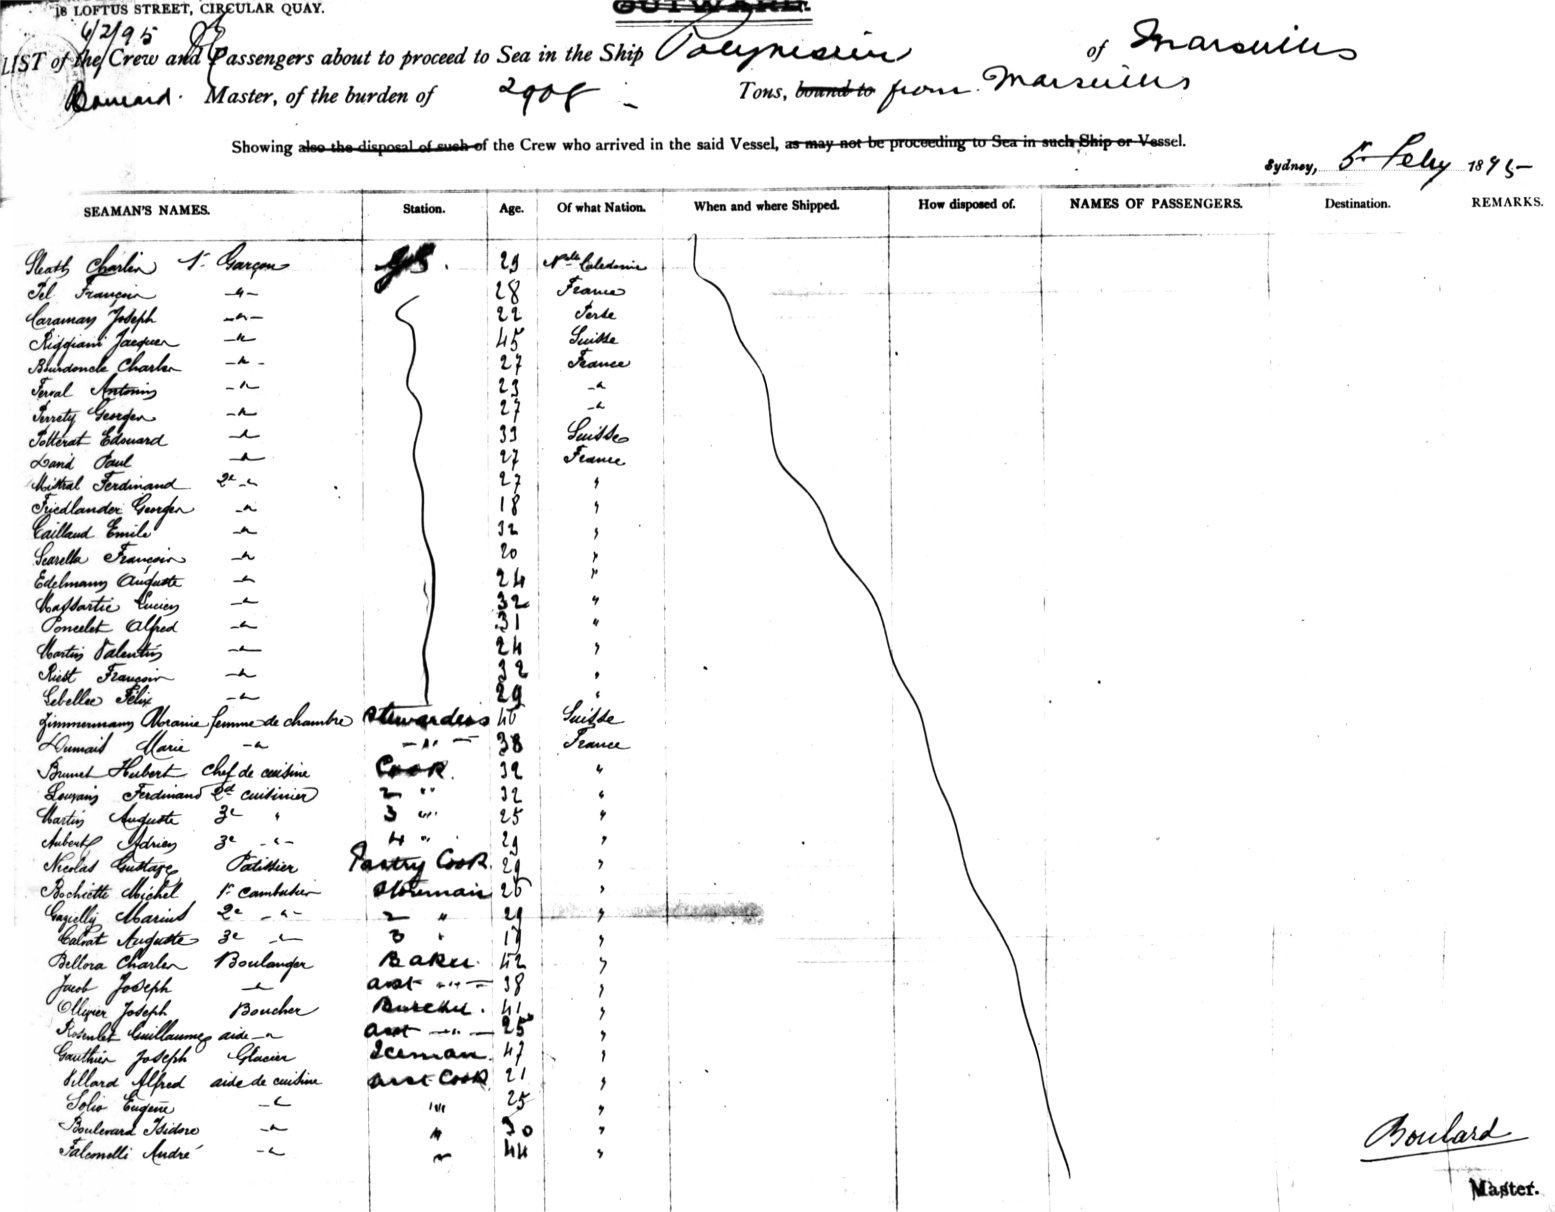 18 LOFTUS STREET, CIRCULAR QUAY.
OUTWARD.
6/2/95
LIST of the Crew and Passengers about to proceed to Sea in the Ship Polynesien of Marseilles
Boulard. Master, of the burden of 2908 Tons, bound to from Marseilles
Showing also the disposal of such of the Crew who arrived in the said Vessel, as may not be proceeding to Sea in such Ship or Vessel.
Sydney, 5 Feby 1895
SEAMAN'S NAMES. Station. Age. Of what Nation. When and where Shipped. How disposed of. NAMES OF PASSENGERS. Destination. REMARKS.
Charles 1r Garçon 29 Nlle Calédonie
François -"- 28 France
Caraman Joseph -"- 22 Perse
Riggiani Jacques -"- 45 Suisse
Bourdoncle Charles -"- 27 France
Ferval Antonin -"- 29 -"
Perrety Georges -"- 27 -"
Potterat Edouard -"- 33 Suisse
David Paul -"- 27 France
Mistral Ferdinand 2e -"- 27 "
Friedlander Georges -"- 18 "
Caillaud Emile -"- 32 "
Scarella François -"- 20 "
Edelmann Auguste -"- 24 "
Massartic Lucien -"- 32 "
Poncelet Alfred -"- 31 "
Martin Valentin -"- 24 "
Riest François -"- 32 "
Lebellec Félix -"- 29 "
Zimmermann femme de chambre Stewardess 46 Suisse
Dumais Marie -"- -"- 38 France
Brunet Hubert chef de cuisine Cook. 32 "
Ferdinand 2d cuisinier 2 " 32 "
Martin Auguste 3e " 3 " 25 "
Aubert Adrien 3e -"- 4 " 29 "
Nicolas Gustave Patissier Pastry Cook. 29 "
Bochiette Michel 1r cambusier Storeman 26 "
Gazielly Marius 2e -"- 2 " 29 "
Calvat Auguste 3e -"- 3 " 19 "
Bellora Charles Boulanger Baker. 42 "
Jacob Joseph -"- asst -"- 38 "
Ollivier Joseph Boucher Butcher. 41 "
Rosenlet Guillaume aide -"- asst -"- 25 "
Gauthier Joseph Glacier Iceman. 47 "
Villard Alfred aide de cuisine asst Cook 21 "
Solio Eugène -"- " 25 "
Boulevard Isidore -"- " 30 "
Falconelli André -"- " 44 "
Boulard
Master.